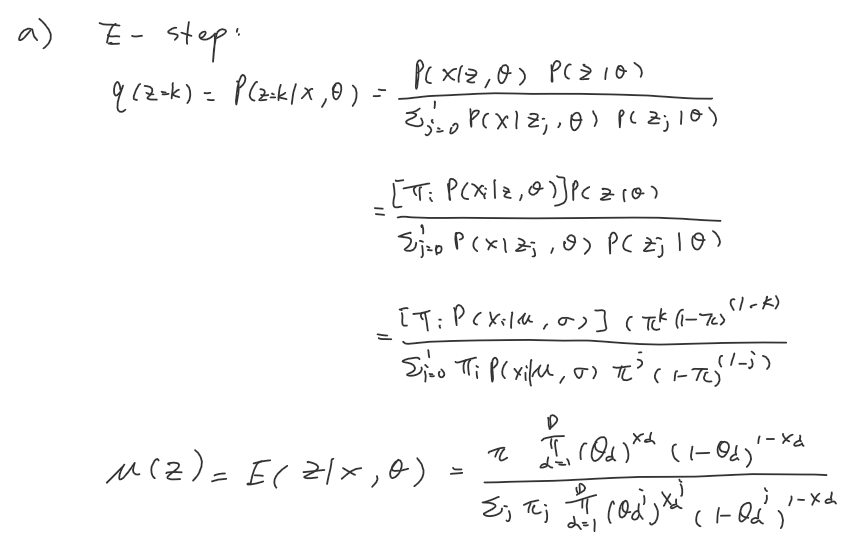 a) E-step:
q(z=k) = P(z=k|x,θ) = P(x|z,θ) P(z|θ) / Σ_{j=0}^{1} P(x|z_j,θ) P(z_j|θ)
= [π_i P(x_i|z,θ)]P(z|θ) / Σ_{j=0}^{1} P(x|z_j,θ) P(z_j|θ)
= [π_i P(x_i|μ,σ)] (π^k (1-π)^{(1-k)} / Σ_{j=0}^{1} π_i P(x_i|μ,σ) π^j (1-π)^{(1-j)}
μ(z) = E(z|x,θ) = π ∏_{d=1}^{D} (θ_d)^{x_d} (1-θ_d)^{1-x_d} / Σ_j π_j ∏_{d=1}^{D} (θ_d^j)^{x_d^j} (1-θ_d^j)^{1-x_d}